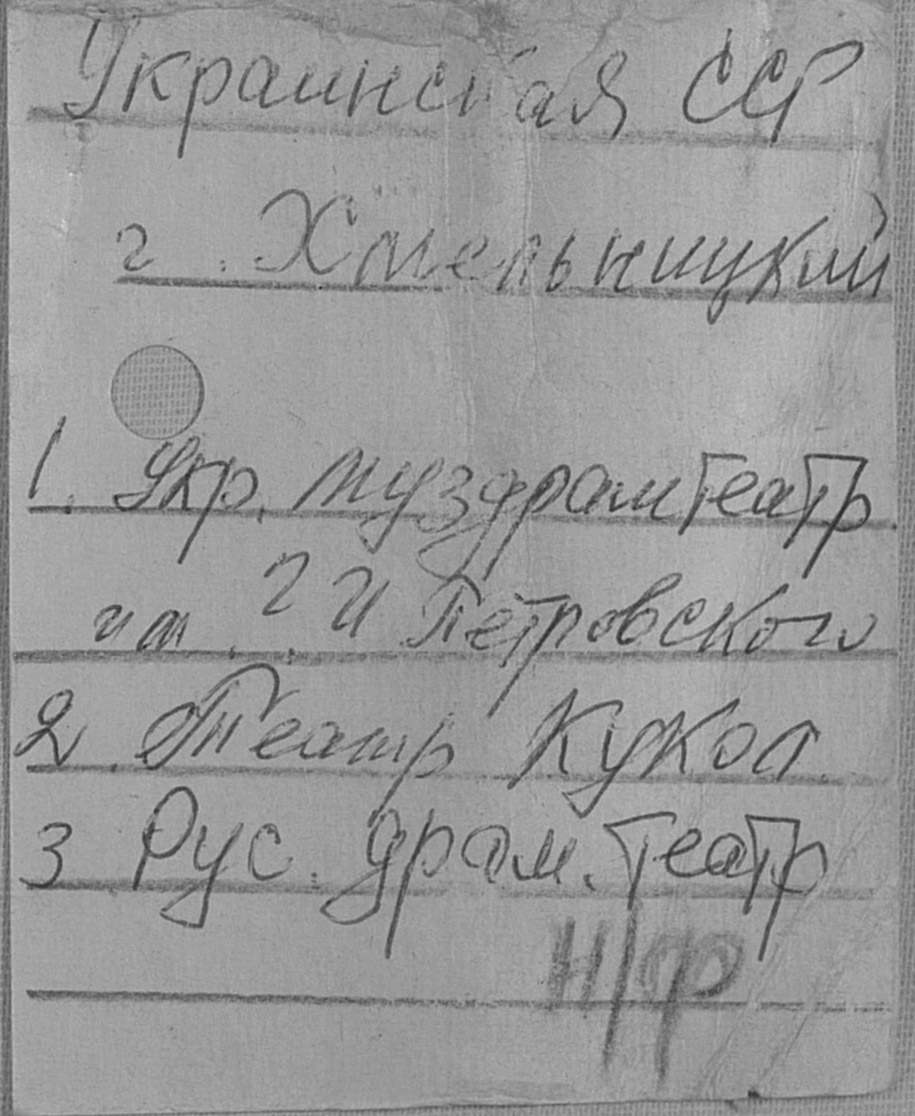 Украинская ССР
г. Хмельницкий
1. Укр. муздрамтеатр
им. Г И Петровского
2. Театр Кукол
3 Рус. драм. театр
Н/Ф